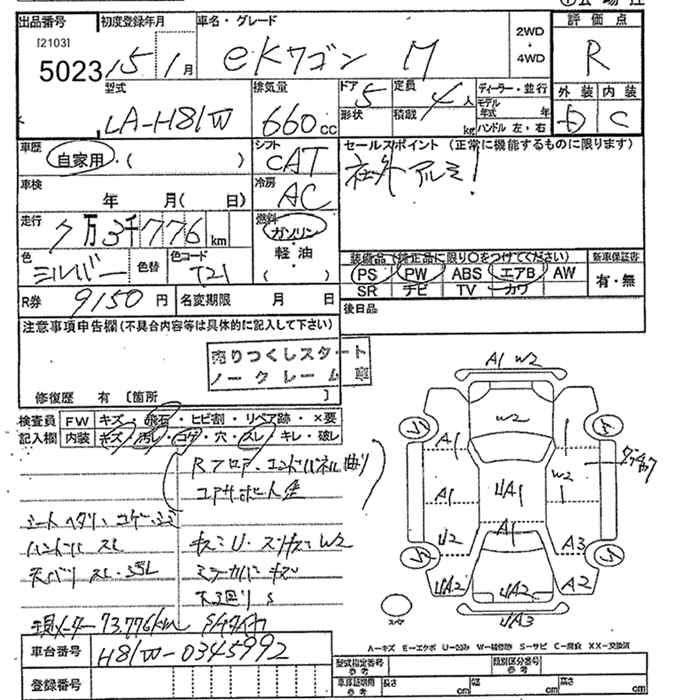 出品番号 初度登録年月 車名・グレード 2WD・4WD 評価点
[2103]
5023 15 1月 eKワゴン M R
型式 排気量 ドア 定員 ディーラー・並行 外装 内装
LA-H81W 660cc 5 4人
形状 積載 kg モデル年式 年 ハンドル 左・右 D C
車歴 自家用・( ) シフト CAT セールスポイント (正常に機能するものに限ります)
社外アルミ!
車検 年 月( 日) 冷房 AC
走行 7万3千776km 燃料 ガソリン 軽油 ( )
色 シルバー 色替 色コード T21
装備品(純正品に限り○をつけてください) 新車保証書
PS PW ABS エアB AW 有・無
SR ナビ TV カワ
R券 9150円 名変期限 月 日 後日品
注意事項申告欄(不具合内容等は具体的に記入して下さい)
売りつくしスタート
ノークレーム車
修復歴 有 [箇所 ]
検査員 FW キズ・飛石・ヒビ割・リペア跡・×要
記入欄 内装 キズ・汚レ・コゲ・穴・スレ・キレ・破レ
Rフロア・エンドパネル曲り
シートヘタリ・コゲ・シミ
ハンドル スレ キズ U・スリキズ W2
天バリ スレ・汚レ
下廻り S
現メーター 73,776km
車台番号 H81W-0345992
登録番号
A1 W2
W2
A1
W2
A1 UA1
A1
U2 A3
UA2 UA2 A2
UA3
スペア
A-キズ E-エクボ U-凹み W-補修跡 S-サビ C-腐食 XX-交換済
型式指定番号 参考 類別区分番号 参考
車庫証明用 参考 長さ cm 幅 cm 高さ cm